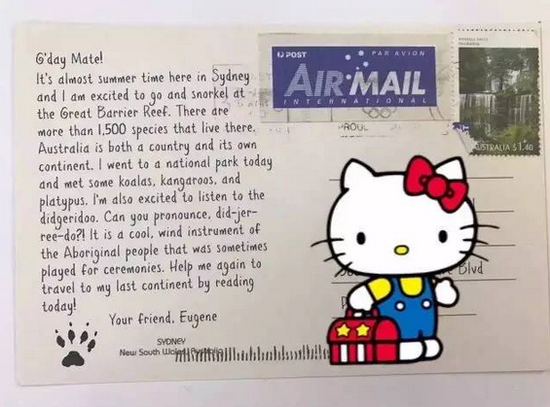 G'day Mate!
It's almost summer time here in Sydney
and I am excited to go and snorkel at
the Great Barrier Reef. There are
more than 1,500 species that live there.
Australia is both a country and its own
continent. I went to a national park today
and met some koalas, kangaroos, and
platypus. I'm also excited to listen to the
didgeridoo. Can you pronounce, did-jer-
ree-do?! It is a cool, wind instrument of
the Aboriginal people that was sometimes
played for ceremonies. Help me again to
travel to my last continent by reading
today!
Your friend, Eugene
SYDNEY
New South Wales, Australia
POST
PAR AVION
AIR MAIL
INTERNATIONAL
AUSTRALIA $1.40
Blvd